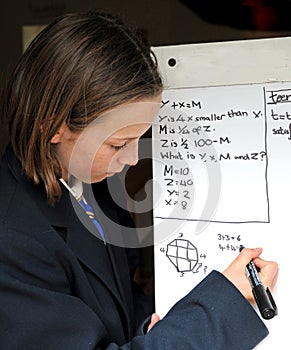 Y+x=M
Y is 4x smaller than x.
M is 1/4 of Z.
Z is 1/2 100-M.
What is Y, x, M and Z?
M=10
Z=40
Y=2
X=8
t=t
3+3=6
3
4
4
3